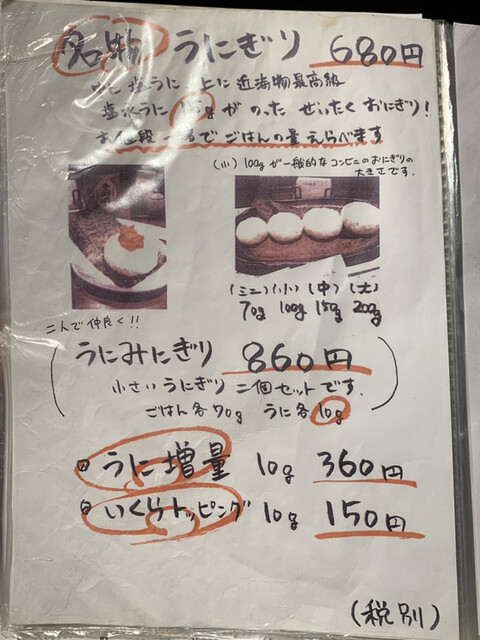 名物 うにぎり 680円
中に塩うに 上に近海物最高級
塩水うに 15gがのった ぜいたくおにぎり!
お値段一客でごはんの量えらべます
(小) 100gが一般的なコンビニのおにぎりの
大きさです.
(ミニ) (小) (中) (大)
70g 100g 150g 200g
二人で仲良く!!
うにみにぎり 860円
小さいうにぎり 二個セットです.
ごはん各70g うに各10g
うに増量 10g 360円
いくらトッピング 10g 150円
(税別)